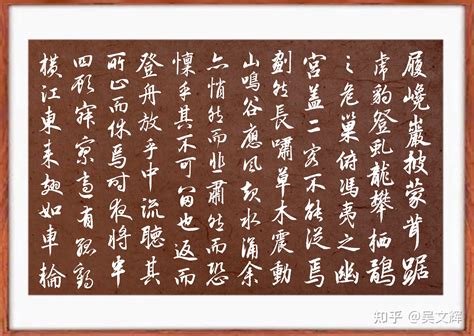 履巉巖披蒙茸踞
虎豹登虬龍攀栖鶻
之危巢俯馮夷之幽
宮盖二客不能從焉
劃然長嘯草木震動
山鳴谷應風起水涌余
亦悄然而悲肅然而恐
懍乎其不可留也返而
登舟放乎中流聽其
所止而休焉时夜將半
四顧寂寥適有孤鶴
橫江東來翅如車輪
知乎 @吴文辉